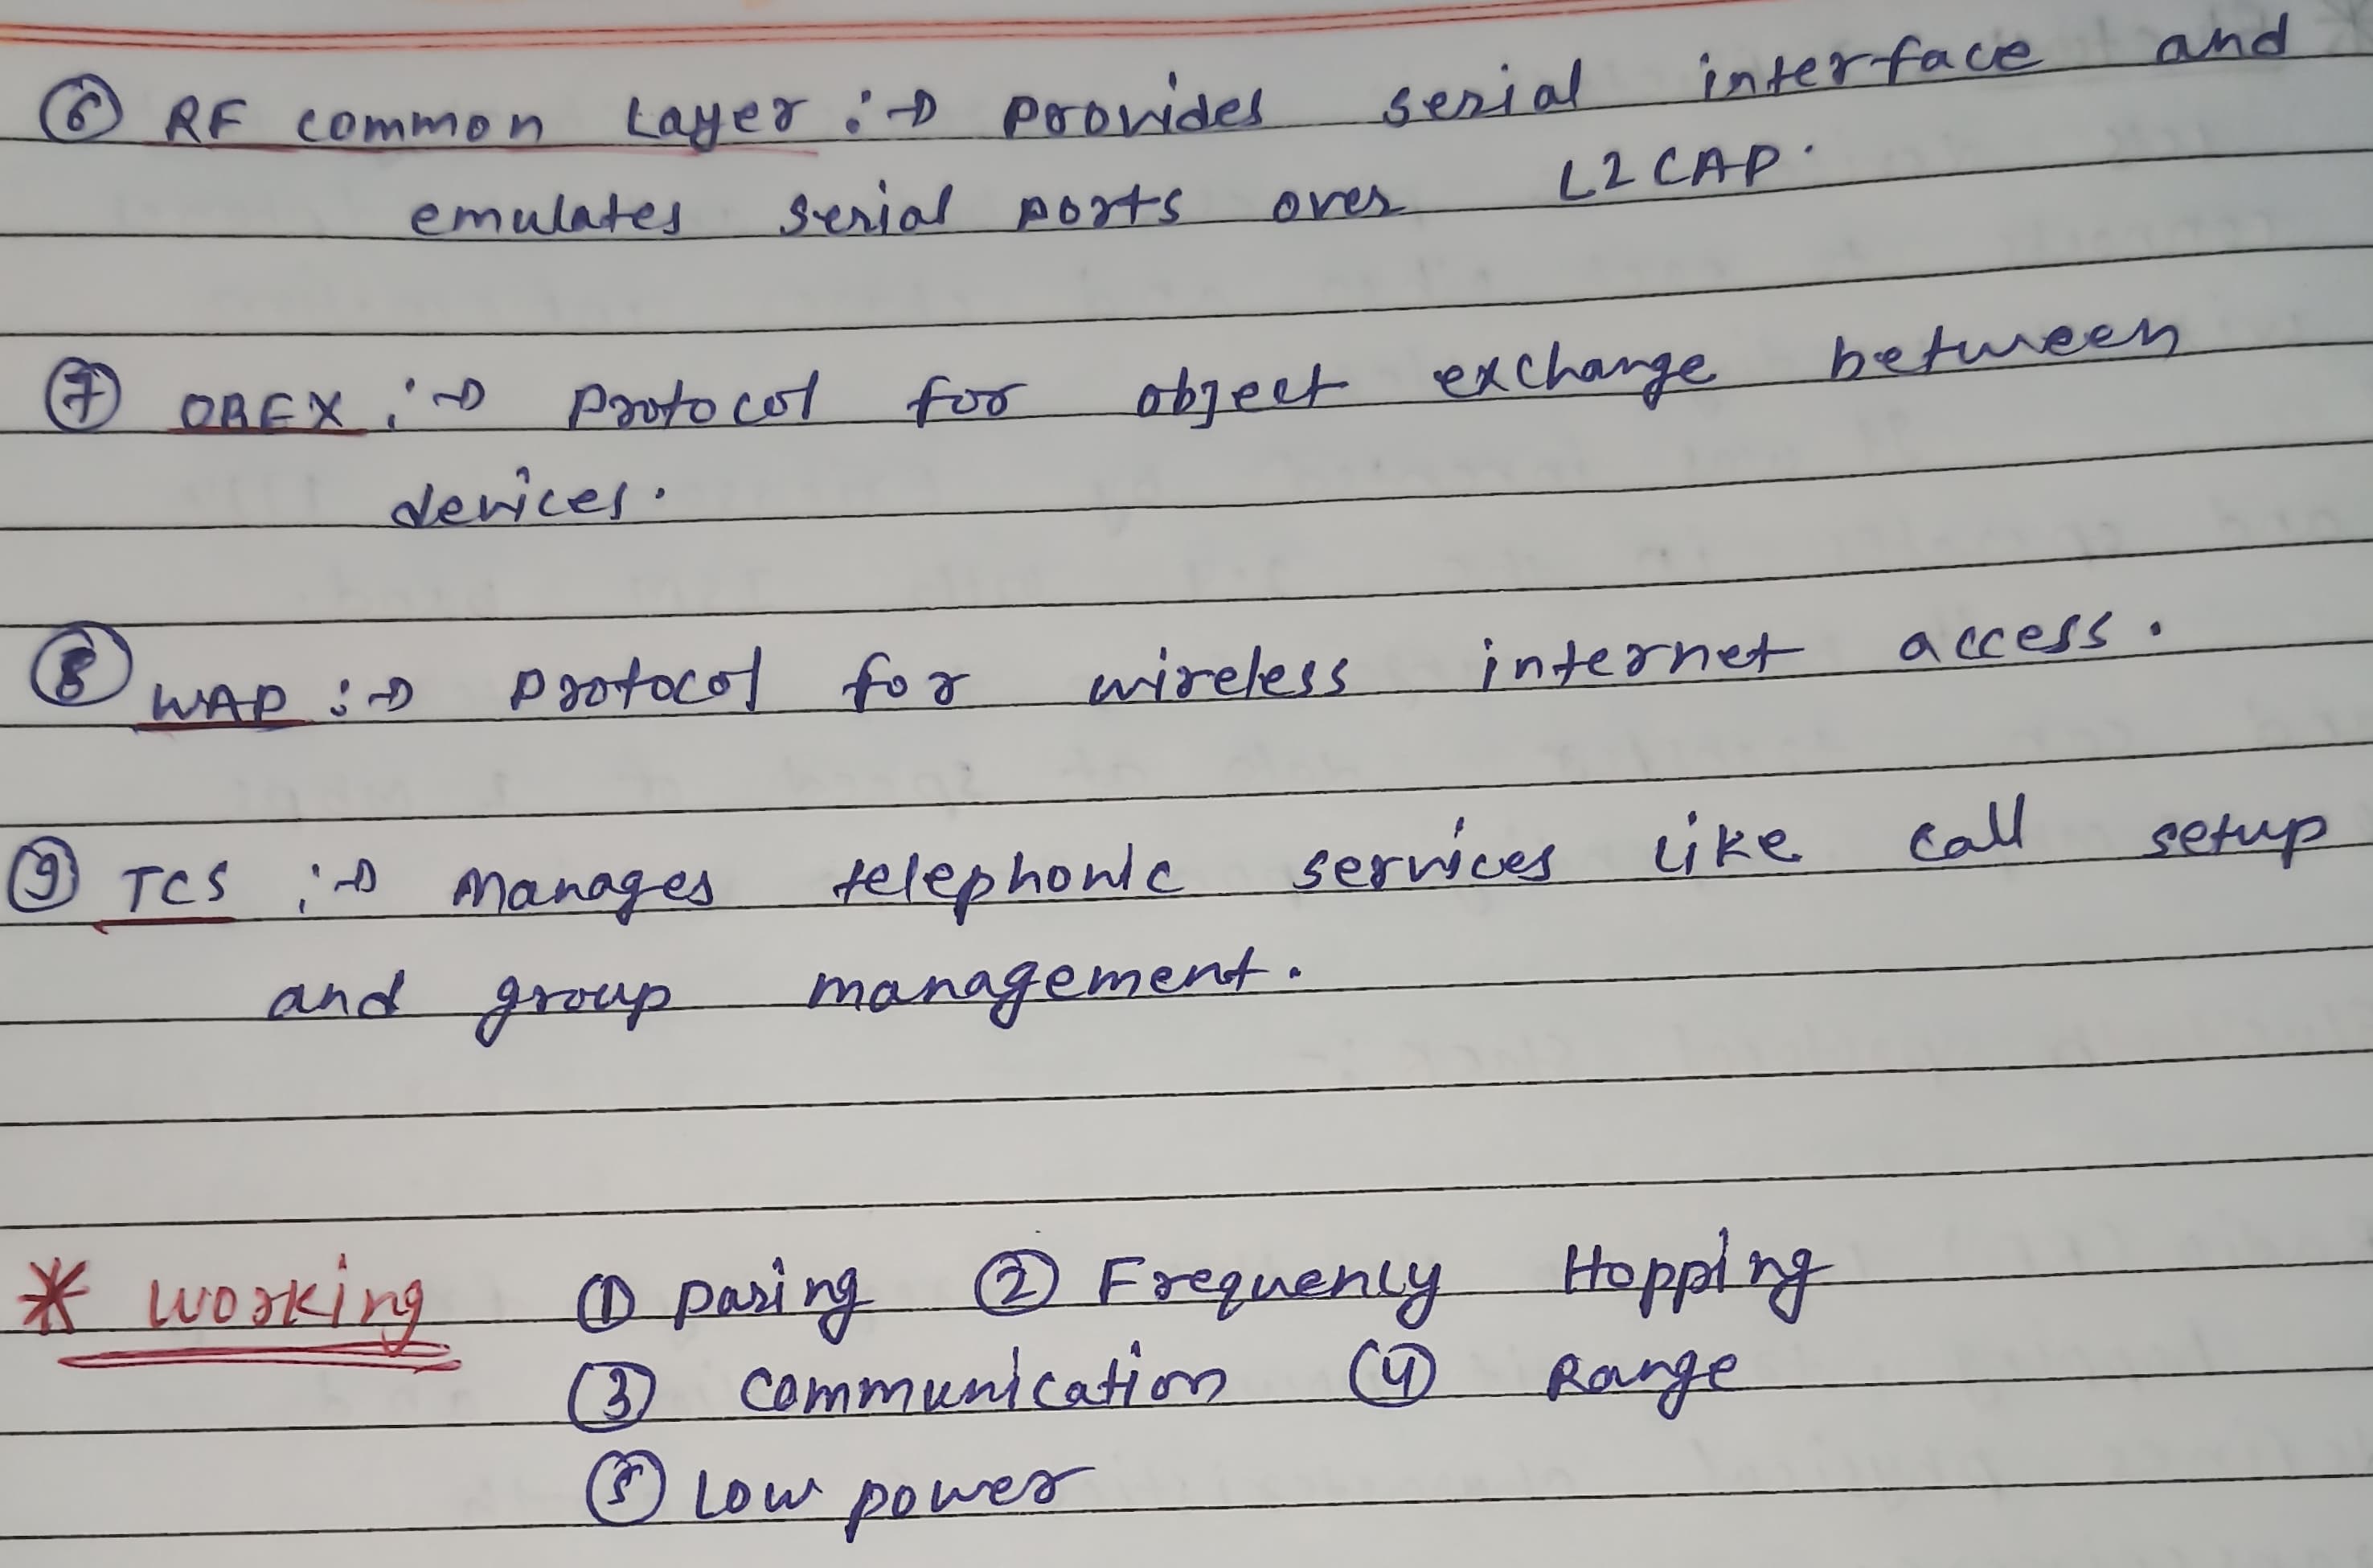 ⑥ RF common Layer :→ provides serial interface and
emulates serial ports over L2CAP.
⑦ OBEX :→ protocol for object exchange between
devices.
⑧ WAP :→ protocol for wireless internet access.
⑨ TCS :→ Manages telephonic services like call setup
and group management.
* Working ① paring ② Frequency Hopping
③ Communication ④ Range
⑤ Low power